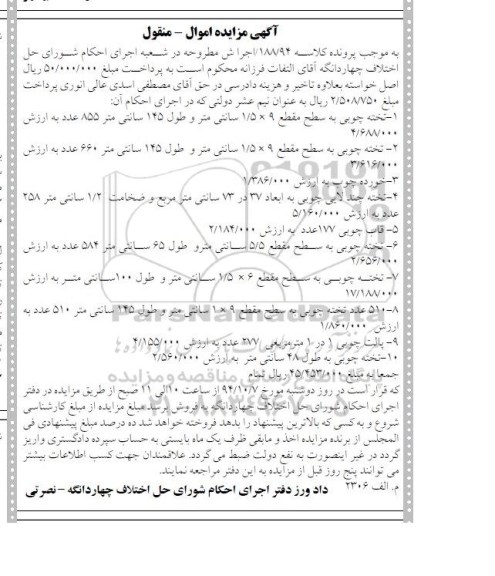 آگهی مزایده اموال – منقول
به موجب پرونده کلاسه ۱۸۸/۹۴/اجرا ش مطروحه در شعبه اجرای احکام شورای حل
اختلاف چهاردانگه آقای التفات فرزانه محکوم است به پرداخت مبلغ ۵۰/۰۰۰/۰۰۰ ریال
اصل خواسته بعلاوه تاخیر و هزینه دادرسی در حق آقای مصطفی اسدی عالی انوری پرداخت
مبلغ ۲/۵۰۸/۷۵۰ ریال به عنوان نیم عشر دولتی که در اجرای احکام آن:
۱-تخته چوبی به سطح مقطع ۹ × ۱/۵ سانتی متر و طول ۱۴۵ سانتی متر ۸۵۵ عدد به ارزش
۴/۶۸۸/۰۰۰
۲- تخته چوبی به سطح مقطع ۹ × ۱/۵ سانتی متر و طول ۱۴۵ سانتی متر ۶۶۰ عدد به ارزش
۳/۶۱۶/۰۰۰
۳-خورده چوب به ارزش ۱/۳۸۶/۰۰۰
۴-تخته چند لایی چوبی به ابعاد ۳۷ در ۷۳ سانتی متر مربع و ضخامت ۱/۲ سانتی متر ۲۵۸
عدد به ارزش ۵/۱۶۰/۰۰۰
۵- قاب چوبی ۱۷۷عدد به ارزش ۲/۱۸۴/۰۰۰
۶- تخته چوبی به سطح مقطع ۵/۵ سانتی مترو طول ۶۵ سانتی متر ۵۸۴ عدد به ارزش
۲/۶۵۶/۰۰۰
۷- تخته چوبی به سطح مقطع ۶ × ۱/۵ سانتی متر و طول ۱۰۰سانتی متر به ارزش
۱۷/۱۸۸/۰۰۰
۸-۵۱۰ عدد تخته چوبی به سطح مقطع ۹ × ۱ سانتی متر و طول ۱۴۵ سانتی متر ۵۱۰ عدد به
ارزش ۱/۸۶۰/۰۰۰
۹- پالت چوبی ۱ در ۱ مترمربعی ۲۷۷ عدد به ارزش ۴/۱۵۵/۰۰۰
۱۰-تخته چوبی به طول ۴۸ سانتی متر به ارزش ۲/۵۶۰/۰۰۰
جمعا به مبلغ ۴۵/۴۵۳/۰۰۰ ریال تمام
که قرار است در روز دوشنبه مورخ ۹۴/۱۰/۷ از ساعت ۱۰الی ۱۱ صبح از طریق مزایده در دفتر
اجرای احکام شورای حل اختلاف چهاردانگه به فروش برسد مبلغ مزایده از مبلغ کارشناسی
شروع و به کسی که بالاترین پیشنهاد را بدهد فروخته خواهد شد ده درصد مبلغ پیشنهادی فی
المجلس از برنده مزایده اخذ و مابقی ظرف یک ماه بایستی به حساب سپرده دادگستری واریز
گردد در غیر اینصورت به نفع دولت ضبط می گردد. علاقمندان جهت کسب اطلاعات بیشتر
می توانند پنج روز قبل از مزایده به این دفتر مراجعه نمایند.
م. الف ۲۳۰۶ داد ورز دفتر اجرای احکام شورای حل اختلاف چهاردانگه – نصرتی